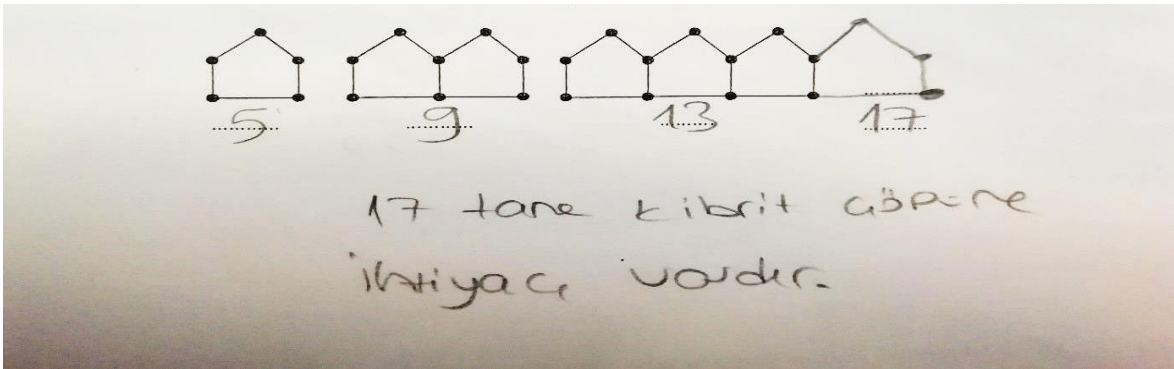 5 9 13 17
17 tane kibrit çöpüne
ihtiyacı vardır.